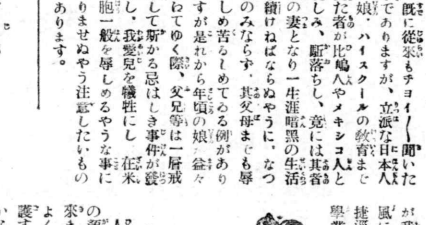 既に從來もチヨイ〱聞いた
でありますが、立派な日本人
娘、ハイスクールの敎育まで
た者が比嶋人やメキシコ人と
しみ、駈落ちし、竟には其者
の妻となり一生涯暗黑の生活
續けねばならぬやうに、なつ
のみならず、其父母までも辱
しめ苦るしめてゐる例があり
すが是れから年頃の娘　益々
わてゆく際、父兄等は一層戒
して斯かる忌はしき事件が發
し、我愛兒を犧牲にし　在米
胞一般を辱しめるやうな事に
りませぬやう注意したいもの
あります。
が我
風に
捷
學業
人
の領
來も
よく
護す